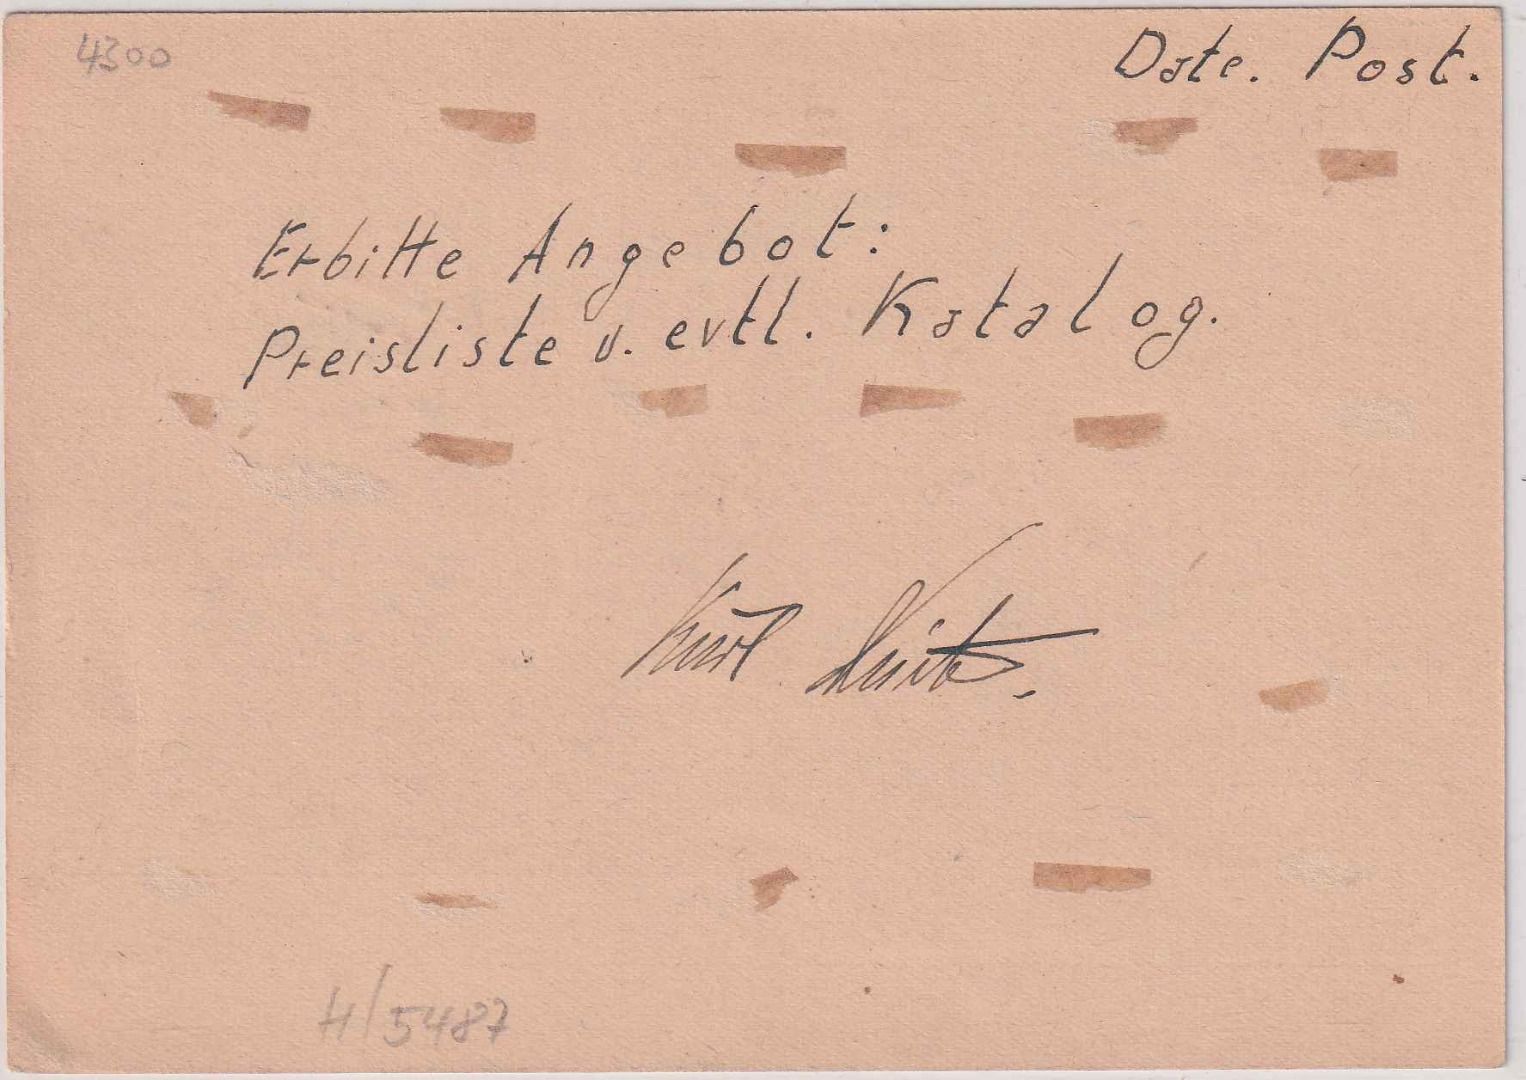 4300
Date. Post.
Erbitte Angebot:
Preisliste u. evtl. Katalog.
Kurl
H/5487